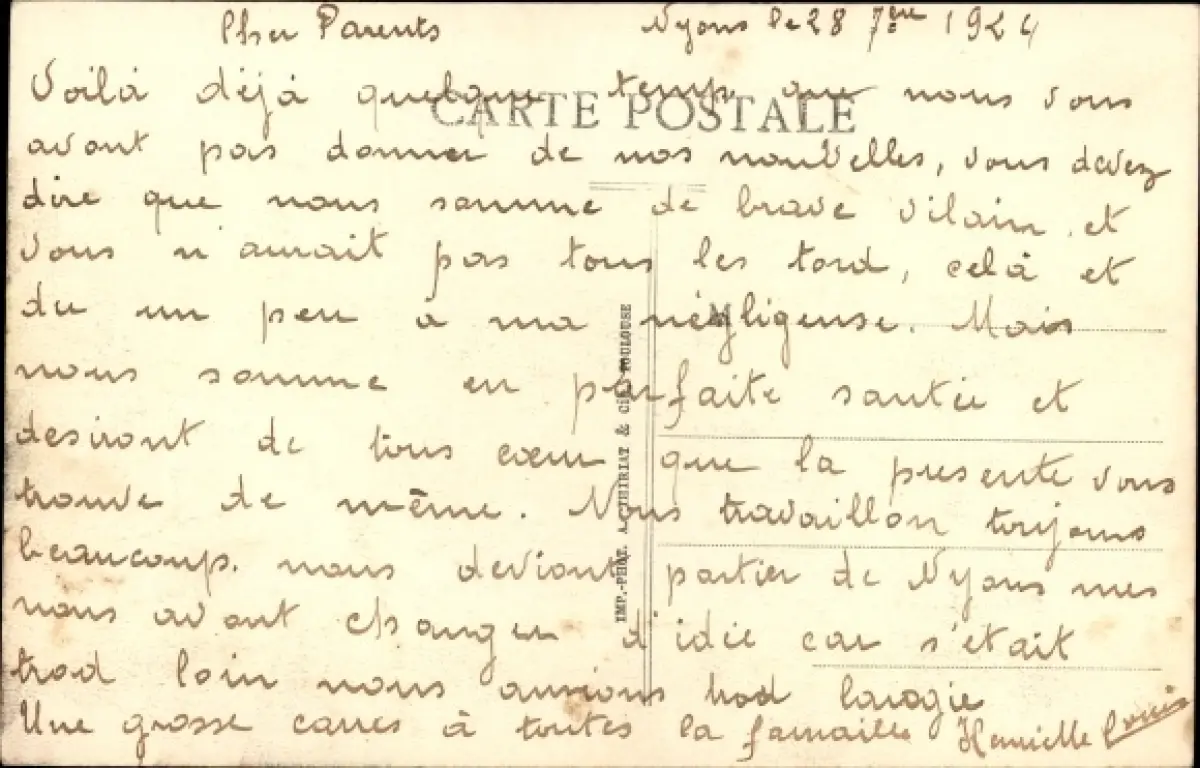 Cher Parents Nyons le 28 7bre 1924
Voilà déjà quelque temp que nous vous
CARTE POSTALE
avont pas donner de nos nouvelles, vous devez
dire que nous somme de brave vilain, et
vous n'aurait pas tous les tord, celà et
du un peu à ma négligeuse. Mais
nous somme en parfaite santée et
desiront de tous cœur que la presente vous
trouve de même. Nous travaillon toujours
beaucoup. nous deviont partier de Nyons mes
nous avont changer d'idée car s'était
trod loin nous aurions trod
Une grosse cares à toutes la famaille Henriette Louis
IMP.-PHOT. A. THIRIAT & CIE TOULOUSE